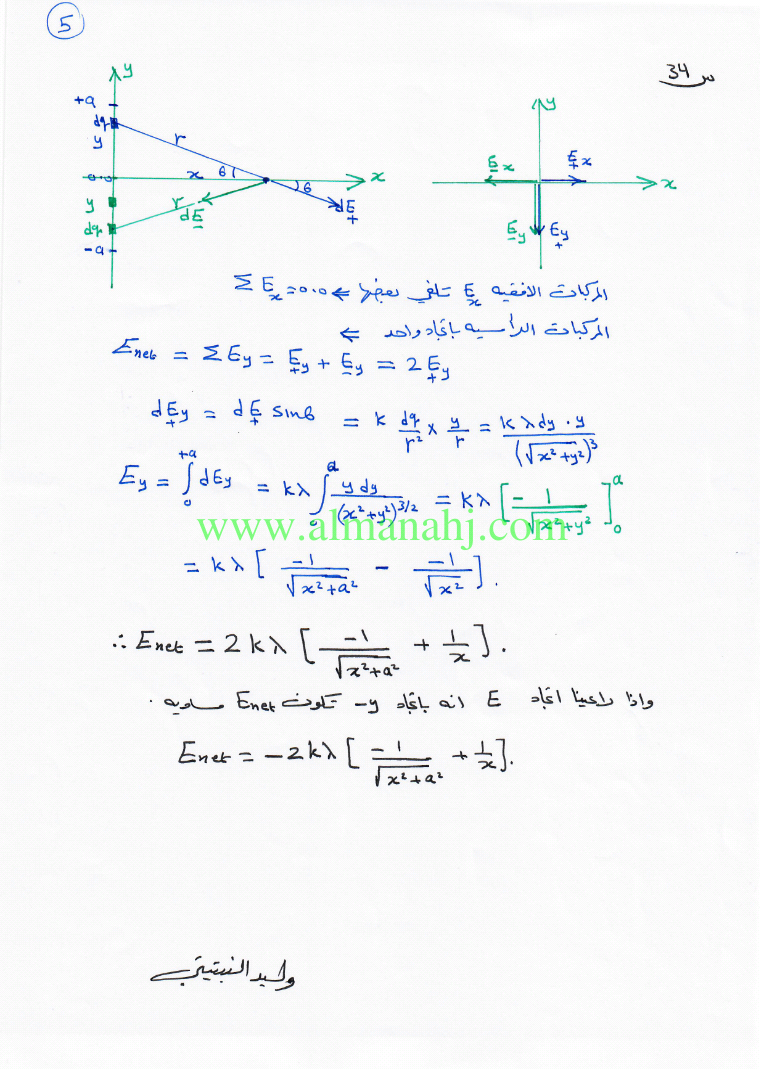 5
س 34
y
+a
dq
y
r
x
θ
θ
x
0.0
dE₊
y
dq
r
dE₋
-a
y
E₋x
E₊x
x
E₋y
E₊y
المركبات الافقيه Eₓ تلغي بعضها ⇐ Σ Eₓ = 0.0
المركبات الرأسيه باتجاه واحد ⇐
Enet = Σ Ey = E₊y + E₋y = 2 E₊y
dE₊y = dE₊ sinθ = k dq/r² × y/r = kλdy · y/(√x²+y²)³
Ey = ∫₀⁺ᵃ dEy = kλ ∫₀ᵃ y dy/(x²+y²)^3/2 = kλ [ - 1/√x²+y² ]₀ᵃ
www.almanahj.com
= kλ [ -1/√x²+a² - -1/√x² ].
∴ Enet = 2kλ [ -1/√x²+a² + 1/x ].
واذا راعينا اتجاه E انه باتجاه -y تكون Enet مساويه .
Enet = -2kλ [ -1/√x²+a² + 1/x ].
وليد